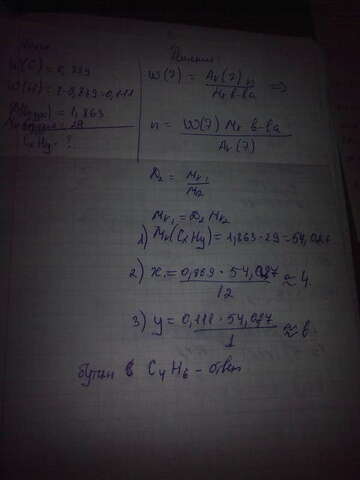 Дано:
W(C) = 0,889
W(H) = 1-0,889=0,111
D(возд) = 1,863
Mr воздуха = 29
CxHy - ?
Решение:
W(Э) = Ar(Э) n / Mr в-ва =>
n = W(Э) Mr в-ва / Ar(Э)
D2 = Mr1 / Mr2
Mr1 = D2 Mr2
1) Mr(CxHy) = 1,863·29=54,027
2) x = 0,889·54,027 / 12 ≈ 4
3) y = 0,111·54,027 / 1 ≈ 6
C4H6 - ответ